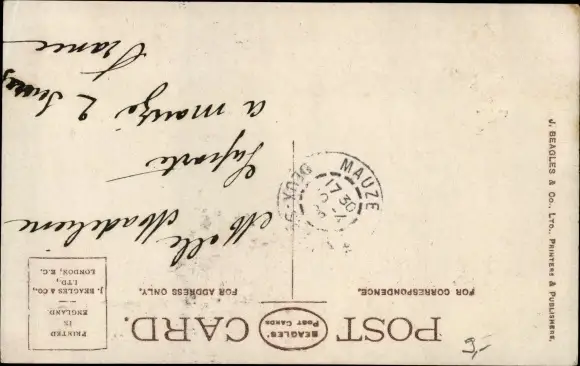 POST CARD.
BEAGLES'
POST CARDS
FOR CORRESPONDENCE.
FOR ADDRESS ONLY.
PRINTED
IN
ENGLAND
J. BEAGLES & CO.,
LTD.,
LONDON, E.C.
J. BEAGLES & CO., LTD., PRINTERS & PUBLISHERS,
MAUZE
17 30
DEUX-S
Melle Madeleine
a mauzé 2 Sevres
France
3,-